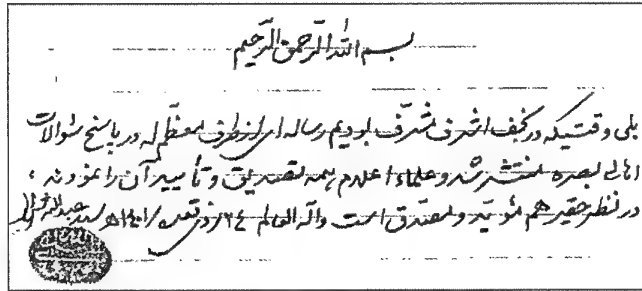 بسم الله الرّحمن الرّحیم
بلی وقتیکه در نجف اشرف مشرّف بودیم رساله ای از طرف معظّم له در پاسخ سئوالات
اهالی بصره منتشر شد و علماء اعلام همه تصدیق و تأیید آن را نمودند،
در نظر حقیر هم مؤیّد و مصدّق است والله العالم ٢٤ ذی قعده ١٤٠١ھ سید عبدالله